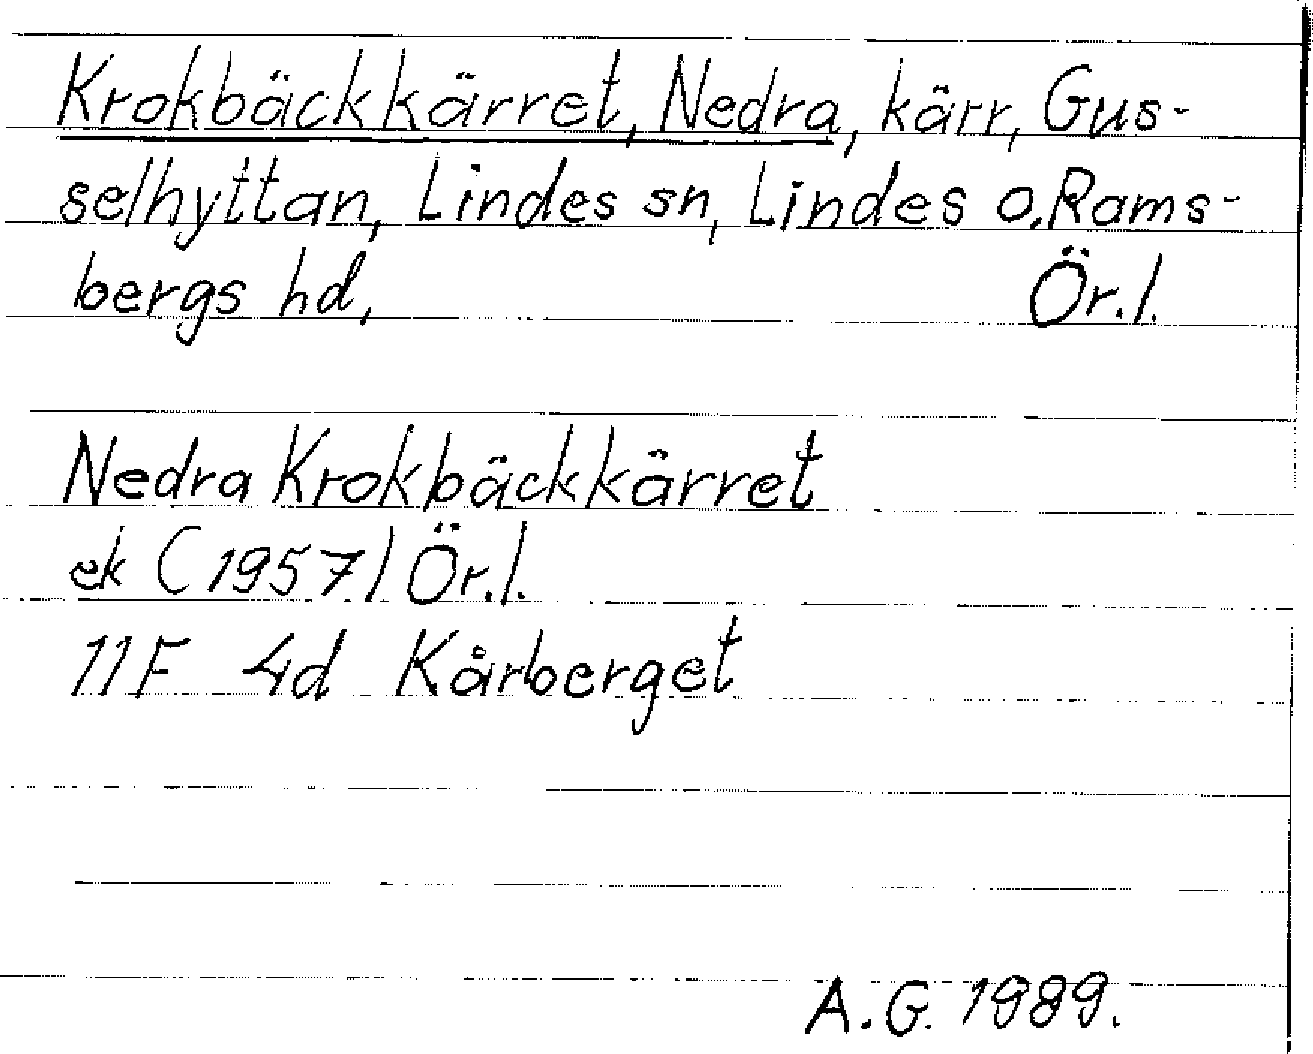 Krokbäckkärret, Nedra, kärr, Gus-
selhyttan, Lindes sn, Lindes o. Rams-
bergs hd, Ör.l.
Nedra Krokbäckkärret
ek (1957) Ör.l.
11F 4d Kårberget
A.G. 1989.